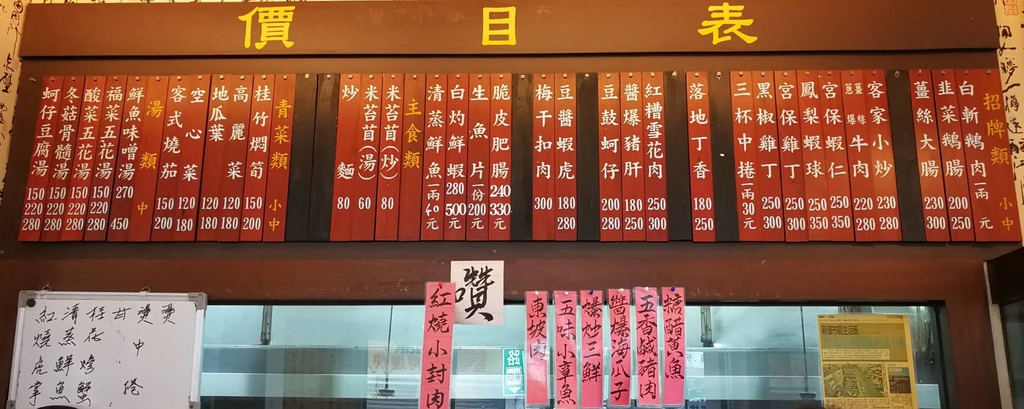 價目表
招牌類 小 中
白斬鵝肉 一兩 元
韭菜鵝腸 200 250
薑絲大腸 230 300
客家小炒 230 280
蔥爆牛肉 220 280
宮保蝦仁 250 350
鳳梨蝦球 250 350
宮保雞丁 250 300
黑椒雞丁 250 300
三杯中捲 一兩30元
落地丁香 180 250
紅糟雪花肉 250 300
醬爆豬肝 180 250
豆鼓蚵仔 200 280
豆醬蝦虎 180 280
梅干扣肉 300
脆皮肥腸 240 330
生魚片 一份200元
白灼鮮蝦 280 500
清蒸鮮魚 一兩40元
主食類
米苔苜(炒) 80
米苔苜(湯) 60
炒麵 80
青菜類 小 中
桂竹燜筍 200 250
高麗菜 120 180
地瓜葉 120 180
空心菜 120 180
客式燒茄 150 200
湯類 中
鮮魚味噌湯 270 450
福菜五花湯 150 220 280
酸菜五花湯 150 220 280
冬菇骨髓湯 150 220 280
蚵仔豆腐湯 150 220 280
讚
糖醋黃魚
五香鹹豬肉
醬爆海八子
爆炒三鮮
五味小章魚
東坡肉
紅燒小封肉
燙
燙中捲
甘
桂花烤蟹
清蒸鮮魚
紅燒虎掌